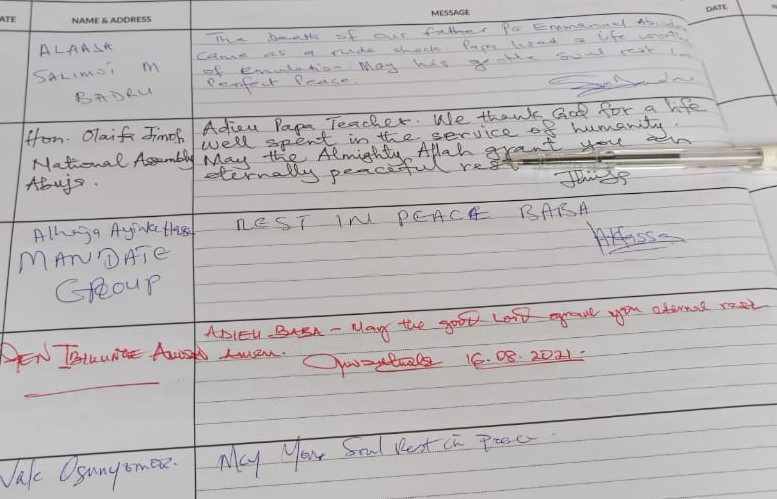 ATE
NAME & ADDRESS
MESSAGE
DATE
ALAASA
SALIMOT M
BADRU
The Death of our father Pa Emmanuel
came as a rude shock. Papa lived a life worth
of Emulation. May his gentle soul rest in
Perfect Peace.
Hon. Olaifa Jimoh
National Assembly
Abuja.
Adieu Papa Teacher. We thank God for a life
well spent in the service of humanity.
May the Almighty Allah grant you an
eternally peaceful rest
Alhaja
MANDATE
GROUP
REST IN PEACE BABA
ADIEU BABA - May the good Lord grant you eternal rest
Amen.
16.08.2021.
May Your Soul Rest in Peace.